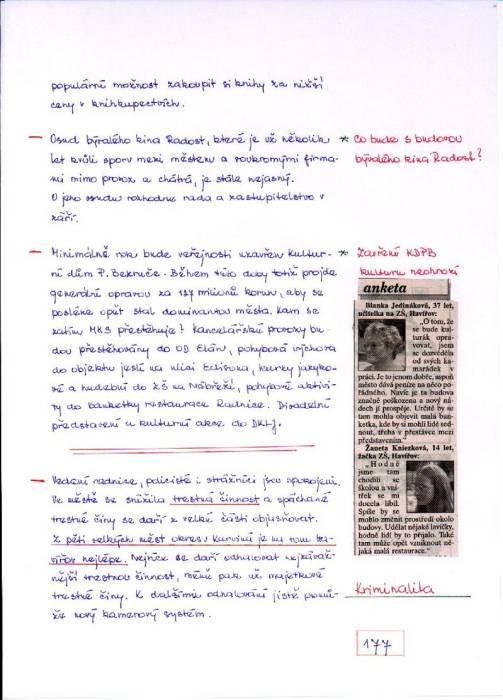 populární možnost zakoupit si knihy za nižší
ceny v knihkupectvích.
— Osud bývalého kina Radost, které je už několik
let kvůli sporu mezi městem a soukromými firma-
mi mimo provoz a chátrá, je stále nejasný.
O jeho osudu rozhodne rada a zastupitelstvo v
září.
* Co bude s budovou
bývalého kina Radost?
— Minimálně rok bude veřejnosti uzavřen Kultur-
ní dům P. Bezruče. Během této doby totiž projde
generální opravou za 127 milionů korun, aby se
posléze opět stal dominantou města. Kam se
zatím MKS přestěhuje? Kancelářské provozy bu-
dou přestěhovány do OD Elán, pohybová výchova
do objektu jeslí na ulici Edisona, kurzy jazyko-
vé a hudební do ZŠ na Nábřeží, pohybové aktivi-
ty do banketky restaurace Radnice. Divadelní
představení a kulturní akce do DKLJ.
* Zavření KDPB
kulturu neohrozí
anketa
Blanka Jedináková, 37 let,
učitelka na ZŠ, Havířov:
„O tom, že
se bude kul-
turák oprav-
ovat, jsem
se dozvěděla
od svých ka-
marádek v
práci. Je to jenom dobře, aspoň
město dává peníze na něco po-
řádného. Navíc je ta budova
značně poškozena a nový ná-
těr jí prospěje. Určitě by se
tam mohla objevit malá ban-
ketka, kde by si mohli lidé sed-
nout, třeba v přestávce mezi
představením.“
Žaneta Kniezková, 14 let,
žačka ZŠ, Havířov:
„Hodně
jsme tam
chodili se
školou a vni-
třek se mi
docela líbil.
Spíše by se
mohlo změnit prostředí okolo
budovy. Udělat nějaké lavičky,
hodně lidí by to přijalo. Také
tam může opět vzniknout ně-
jaká malá restaurace.“
— Vedení radnice, policisté i strážníci jsou spokojeni.
Ve městě se snížila trestná činnost a spáchané
trestné činy se daří z velké části objasňovat.
Z pěti velkých měst okresu Karviná je na tom Ha-
vířov nejlépe. Nejvíce se daří odhalovat nejzávaž-
nější trestnou činnost, méně pak už majetkové
trestné činy. K dalšímu odhalování jistě pomů-
že nový kamerový systém.
Kriminalita
177